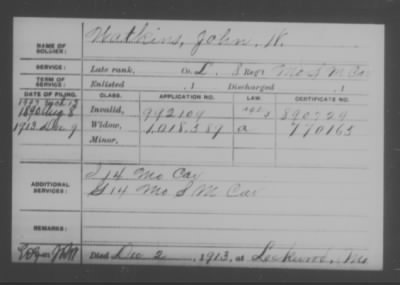 NAME OF SOLDIER: Watkins, John W.
SERVICE: Late rank, Co. L. 8 Reg't Mo S M Cav
TERM OF SERVICE: Enlisted , 1 Discharged , 1
DATE OF FILING. CLASS. APPLICATION NO. LAW. CERTIFICATE NO.
1890 Aug 8 Invalid, 942109
1913 Dec 9 Widow, 1,018.389 a 770163
Minor,
ADDITIONAL SERVICES: 14 Mo Cav
G 14 Mo S M Cav
REMARKS:
Died Dec 2, 1913, at Mo